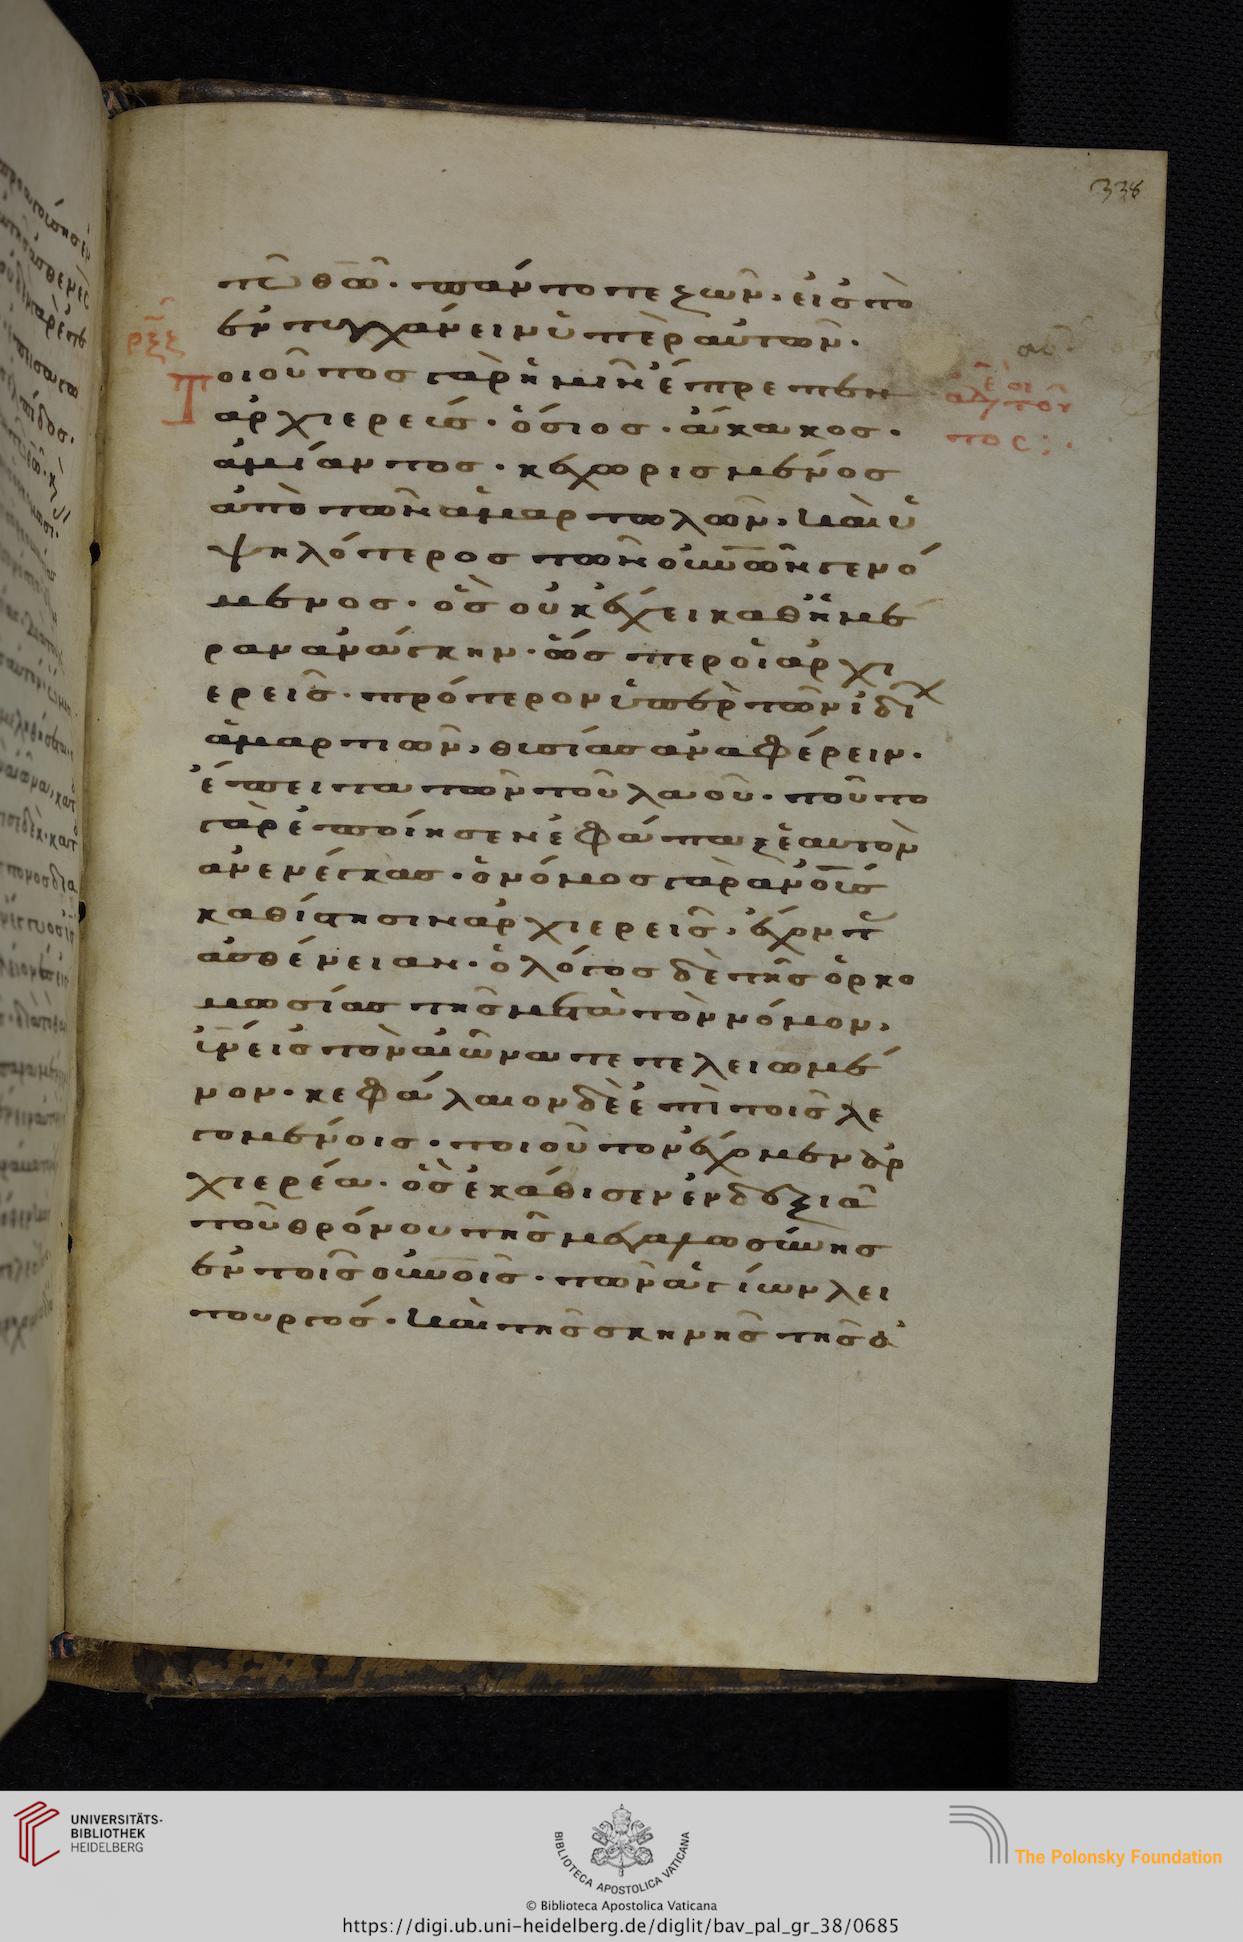 338
τῶ θῶ· πάντοτε ζῶν, εἰς τὸ
ἐντυγχάνειν ὑπὲρ αὐτῶν·
Τοιοῦτος γὰρ ἡμῖν ἔπρεπεν
ἀρχιερεύς· ὅσιος· ἄκακος·
ἀμίαντος· κεχωρισμένος
ἀπὸ τῶν ἁμαρτωλῶν, καὶ ὑ
ψηλότερος τῶν οὐνῶν γενό
μενος· ὃς οὐκ ἔχει καθ ἡμέ
ραν ἀνάγκην· ὥσπερ οἱ ἀρχι
ερεῖς· πρότερον ὑπὲρ τῶν ἰδί
ἁμαρτιῶν, θυσίας ἀναφέρειν·
ἔπειτα τῶν τοῦ λαοῦ· τοῦτο
γὰρ ἐποίησεν ἐφάπαξ ἑαυτὸν
ἀνενέγκας· ὁ νόμος γὰρ ἀνοῖς
καθίστησιν ἀρχιερεῖς, ἔχοντ
ἀσθένειαν· ὁ λόγος δὲ τῆς ὁρκο
μωσίας τῆς μετὰ τὸν νόμον,
ὑν εἰς τὸν αἰῶνα τετελειωμέ
νον· κεφάλαιον δὲ ἐπὶ τοῖς λε
γομένοις· τοιοῦτον ἔχομεν ἀρ
χιερέα· ὃς ἐκάθισεν ἐν δεξιᾶ
τοῦ θρόνου τῆς μεγαλωσύνης
ἐν τοῖς οὐνοῖς· τῶν ἁγίων λει
τουργός· καὶ τῆς σκηνῆς τῆς ἀ
UNIVERSITÄTS-
BIBLIOTHEK
HEIDELBERG
BIBLIOTECA APOSTOLICA VATICANA
The Polonsky Foundation
© Biblioteca Apostolica Vaticana
https://digi.ub.uni-heidelberg.de/diglit/bav_pal_gr_38/0685